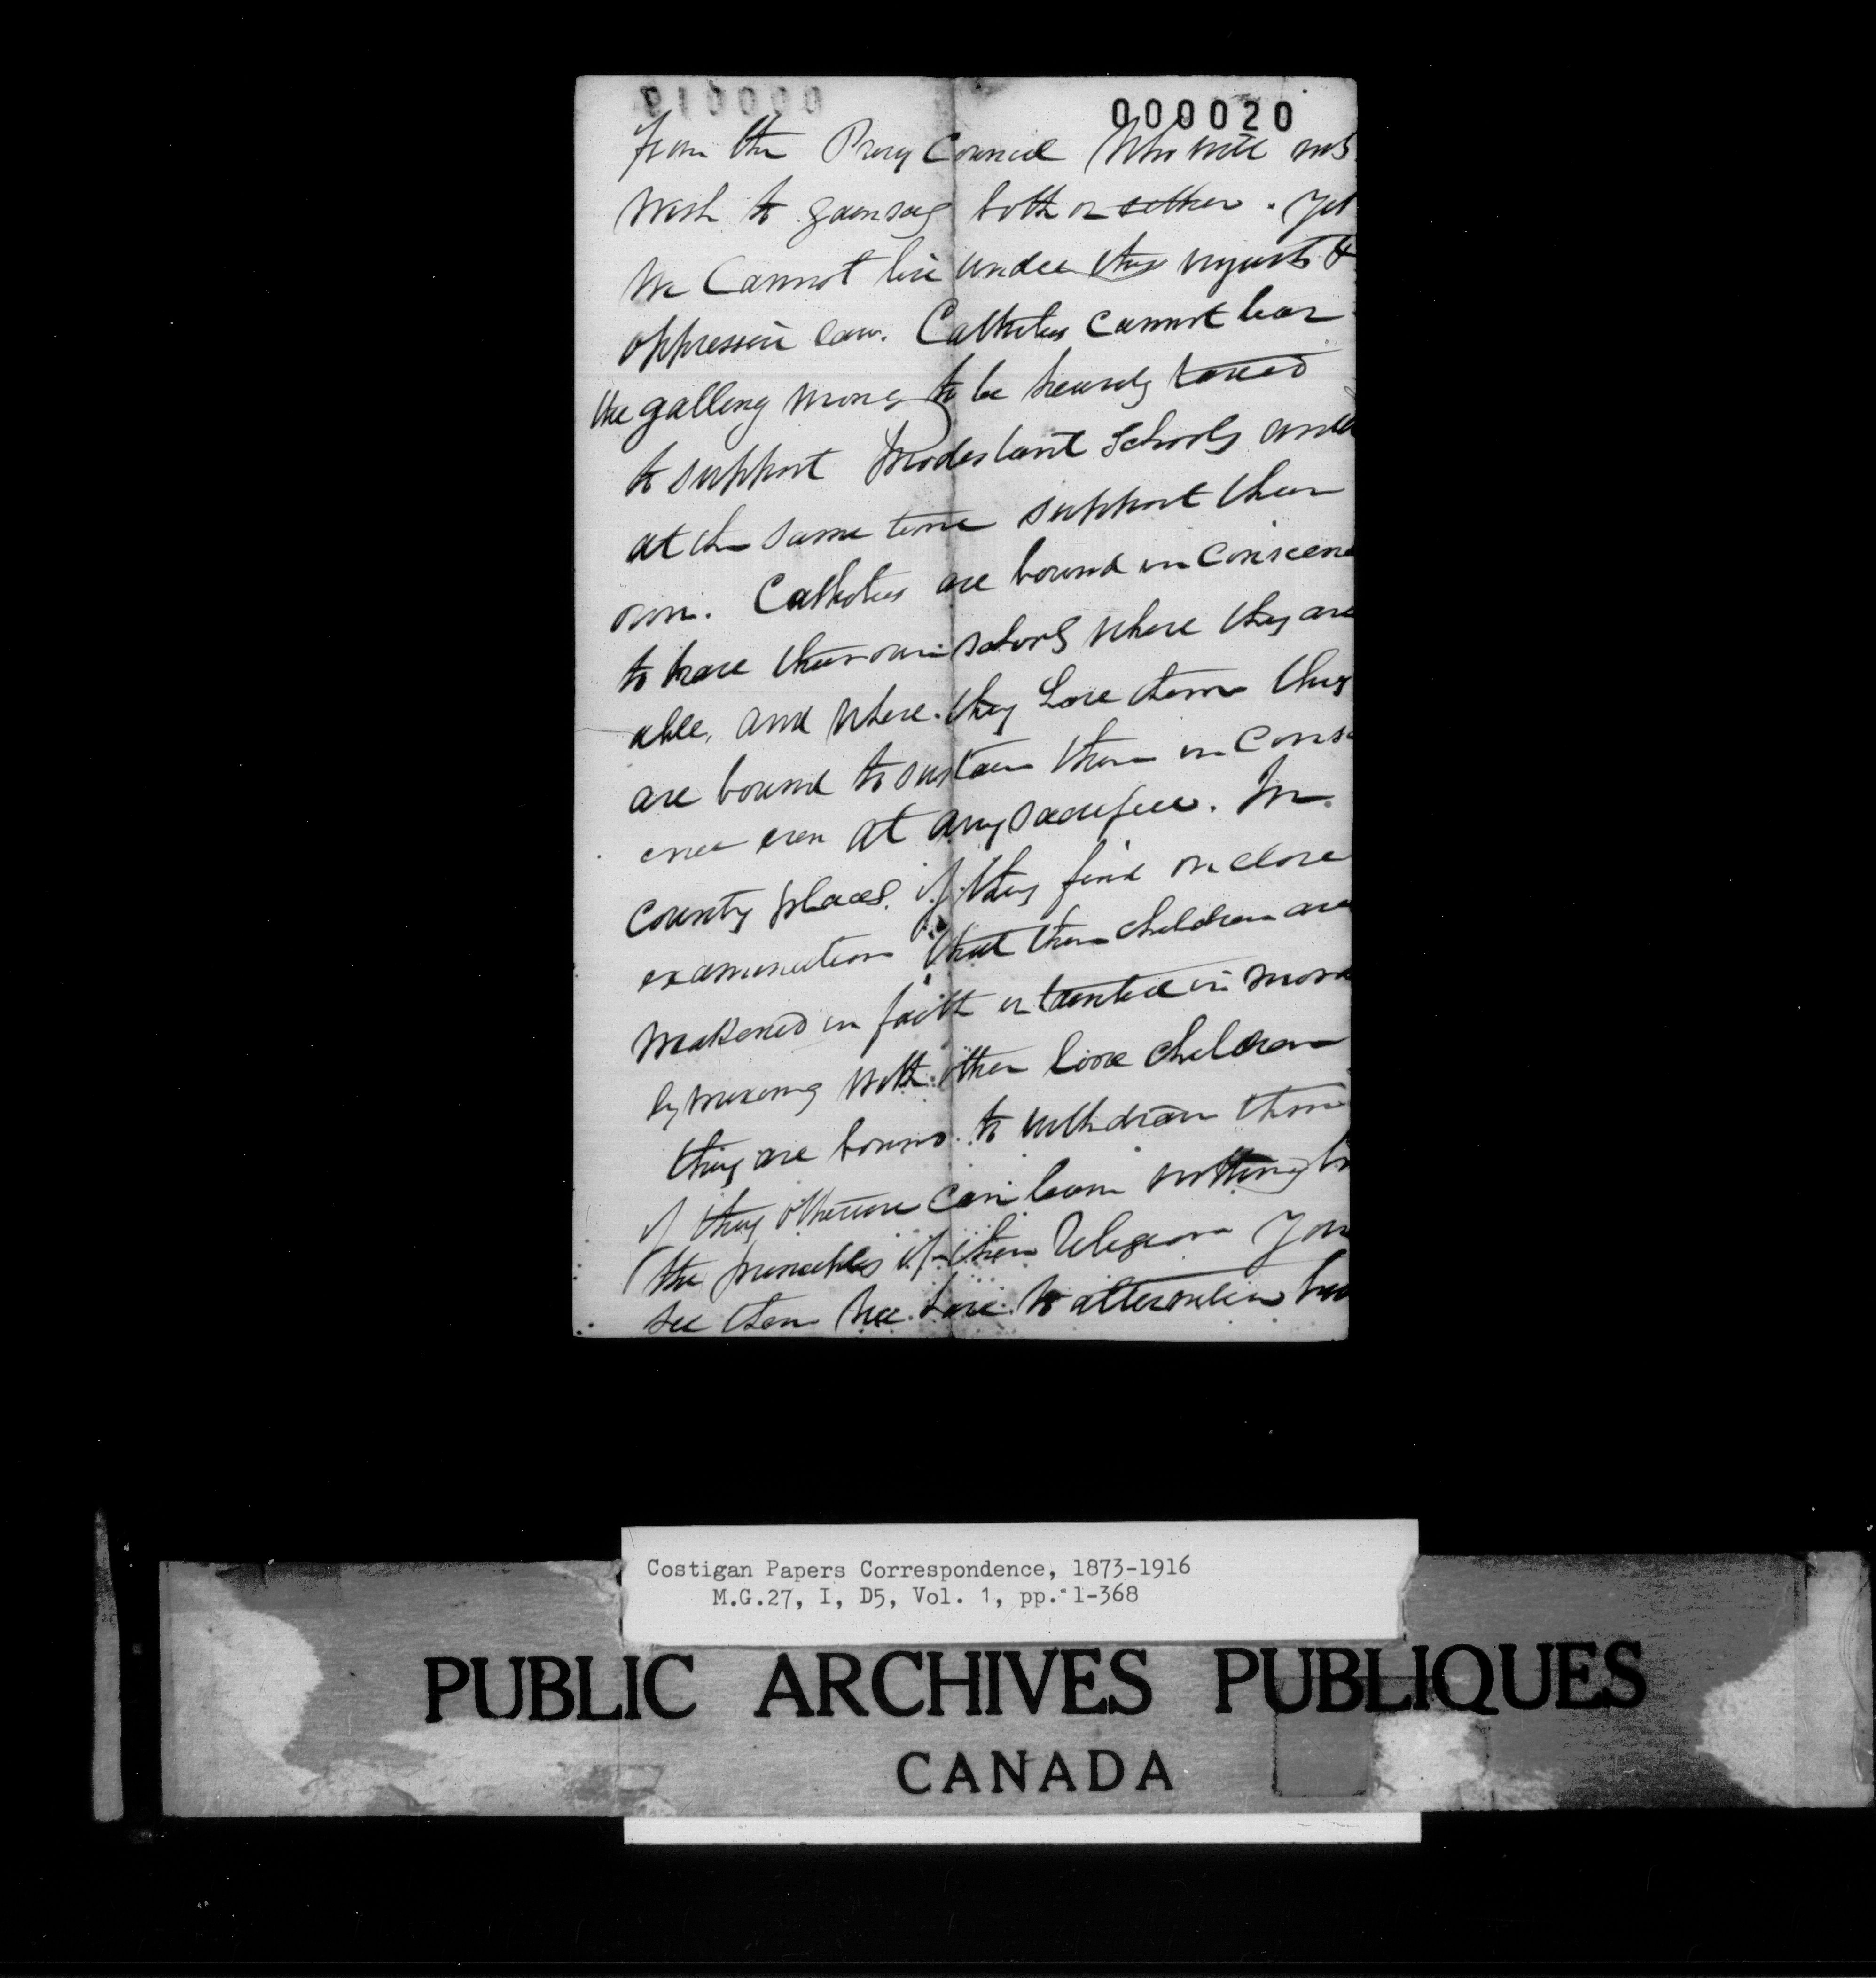 000020
from the Privy Council who will not
wish to gainsay both or either. Yet
we cannot live under this unjust &
oppressive law. Catholics cannot bear
the galling wrong to be heavily taxed
to support Protestant Schools and
at the same time support their
own. Catholics are bound in conscien
to have their own schools where they are
able, and where they have them they
are bound to sustain them in consci
ence even at any sacrifice. In
county places if they find on close
examination that their children are
weakened in faith or tainted in mora
by mixing with other loose children
they are bound to withdraw them
if they otherwise can learn nothing b
the principles of their Religion You
see then we have to alternative but
Costigan Papers Correspondence, 1873-1916
M.G.27, I, D5, Vol. 1, pp. 1-368
PUBLIC ARCHIVES PUBLIQUES
CANADA